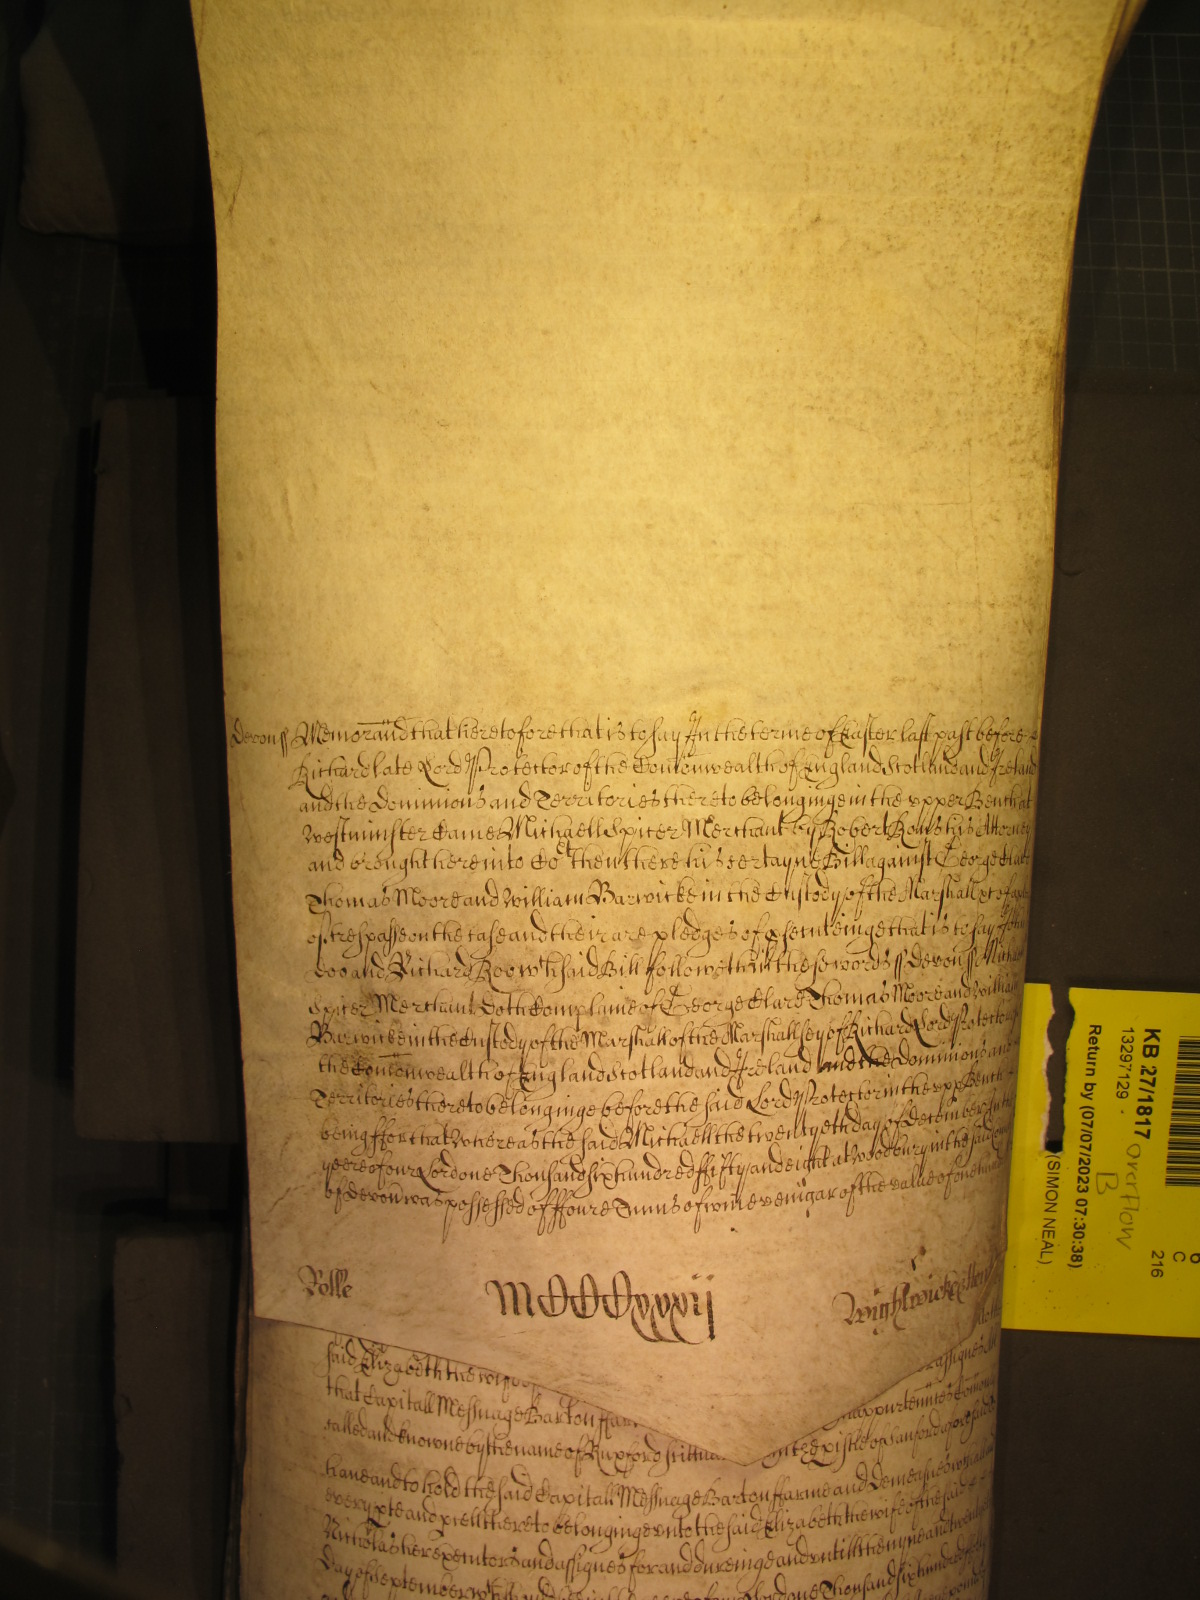 Devonss Memorand that heretofore that is to say In the terme of Easter last past before
Richard late Lord Protector of the Comonwealth of England Scotland and Ireland
and the Dominions and Territories thereto belonginge in the upper Bench at
Westminster Came Michaell Spicer Merchant by Robert Rous his Attorney
and brought here into Cot then there his certayne Bill against George Clare
Thomas Moore and William Barwicke in the Custody of the Marshall &c of a plea
of trespasse on the case and their are pledges of psecuteinge that is to say John
Doo and Richard Roo wch said Bill followeth in these words ss Devonss Michaell
Spicer Merchant Doth Complaine of George Clare Thomas Moore and William
Barwicke in the Custody of the Marshall of the Marshallsey of Richard Lord Protector of
the Comonwealth of England Scotland and Ireland and the Dominions and
Territories thereto belonginge before the said Lord Protector in the upp Bench
being ffor that Whereas the said Michaell the twentyeth day of December in the
yeere of our Lord one Thousand six hundred ffifty and eight at Woodbury in the said County
of Devon was possessed of ffoure Tunns of wine venigar of the value of one hundred
Rolle
MCCCxxxij
Wightwicke
said Elizabeth the wife
that Capitall Messuage Barton ffarme appurtennces Comonly
called and knowne by the name of Ruxford scittuate in the pish of Sanford aforesaid
have and to hold the said Capitall Messuage Barton ffarme and Demeasnes
every pte and pcell thereto belonginge unto the said Elizabeth the wife of the said
Nicholas her executors and assignes for and dureinge and untill the nyne and twentyeth
Day of September wch one Thousand six hundred
KB 27/1817
13297129 -
Return by (07/07/2023 07:30:38)
(SIMON NEAL)
Overflow
B
6
C
216